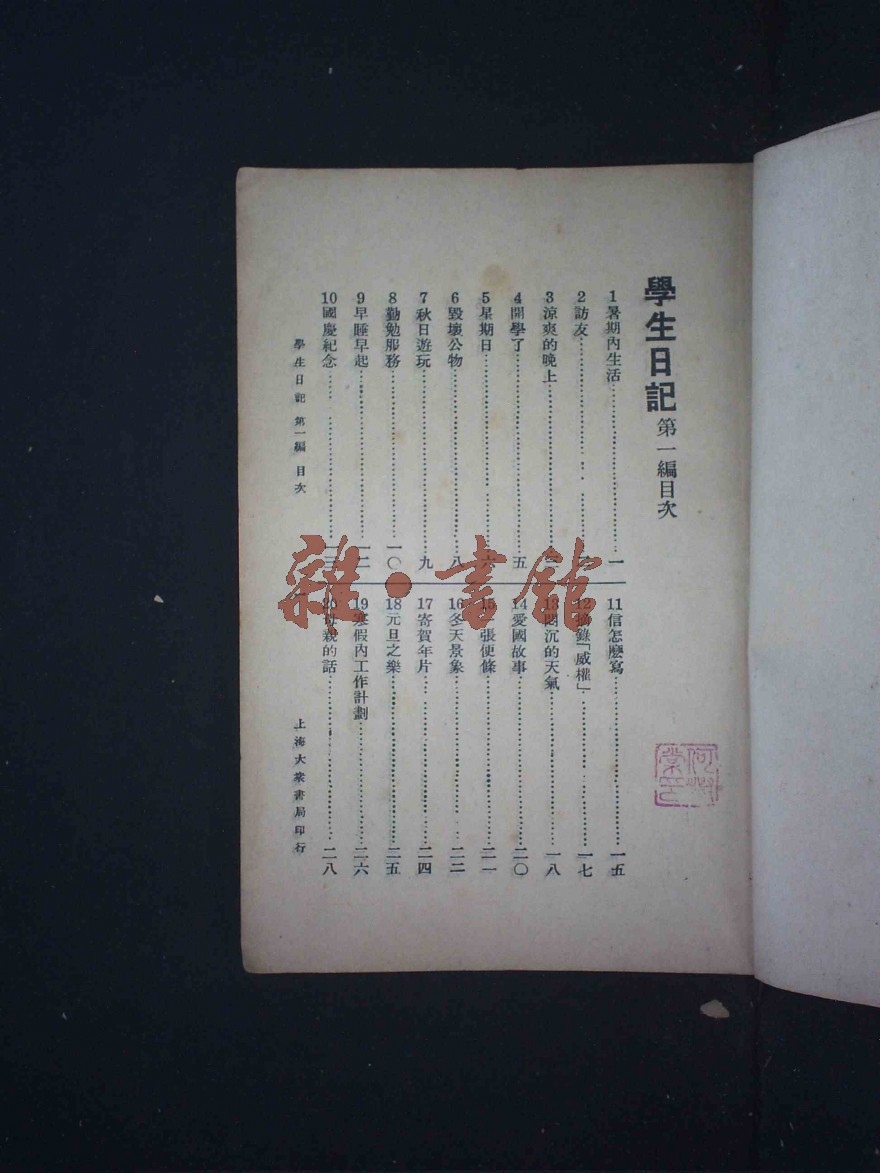 學生日記 第一編目次
1 暑期內生活 一
2 訪友
3 涼爽的晚上
4 開學了 五
5 星期日 六
6 毀壞公物 八
7 秋日遊玩 九
8 勤勉服務 一〇
9 早睡早起 一二
10 國慶紀念 一三
11 信怎麼寫 一五
12 摘錄「威權」 一七
13 悶沉的天氣 一八
14 愛國故事 二〇
15 一張便條 二一
16 冬天景象 二二
17 寄賀年片 二四
18 元旦之樂 二五
19 寒假內工作計劃 二六
20 母親的話 二八
學生日記 第一編 目次
上海大衆書局印行
雜·書館